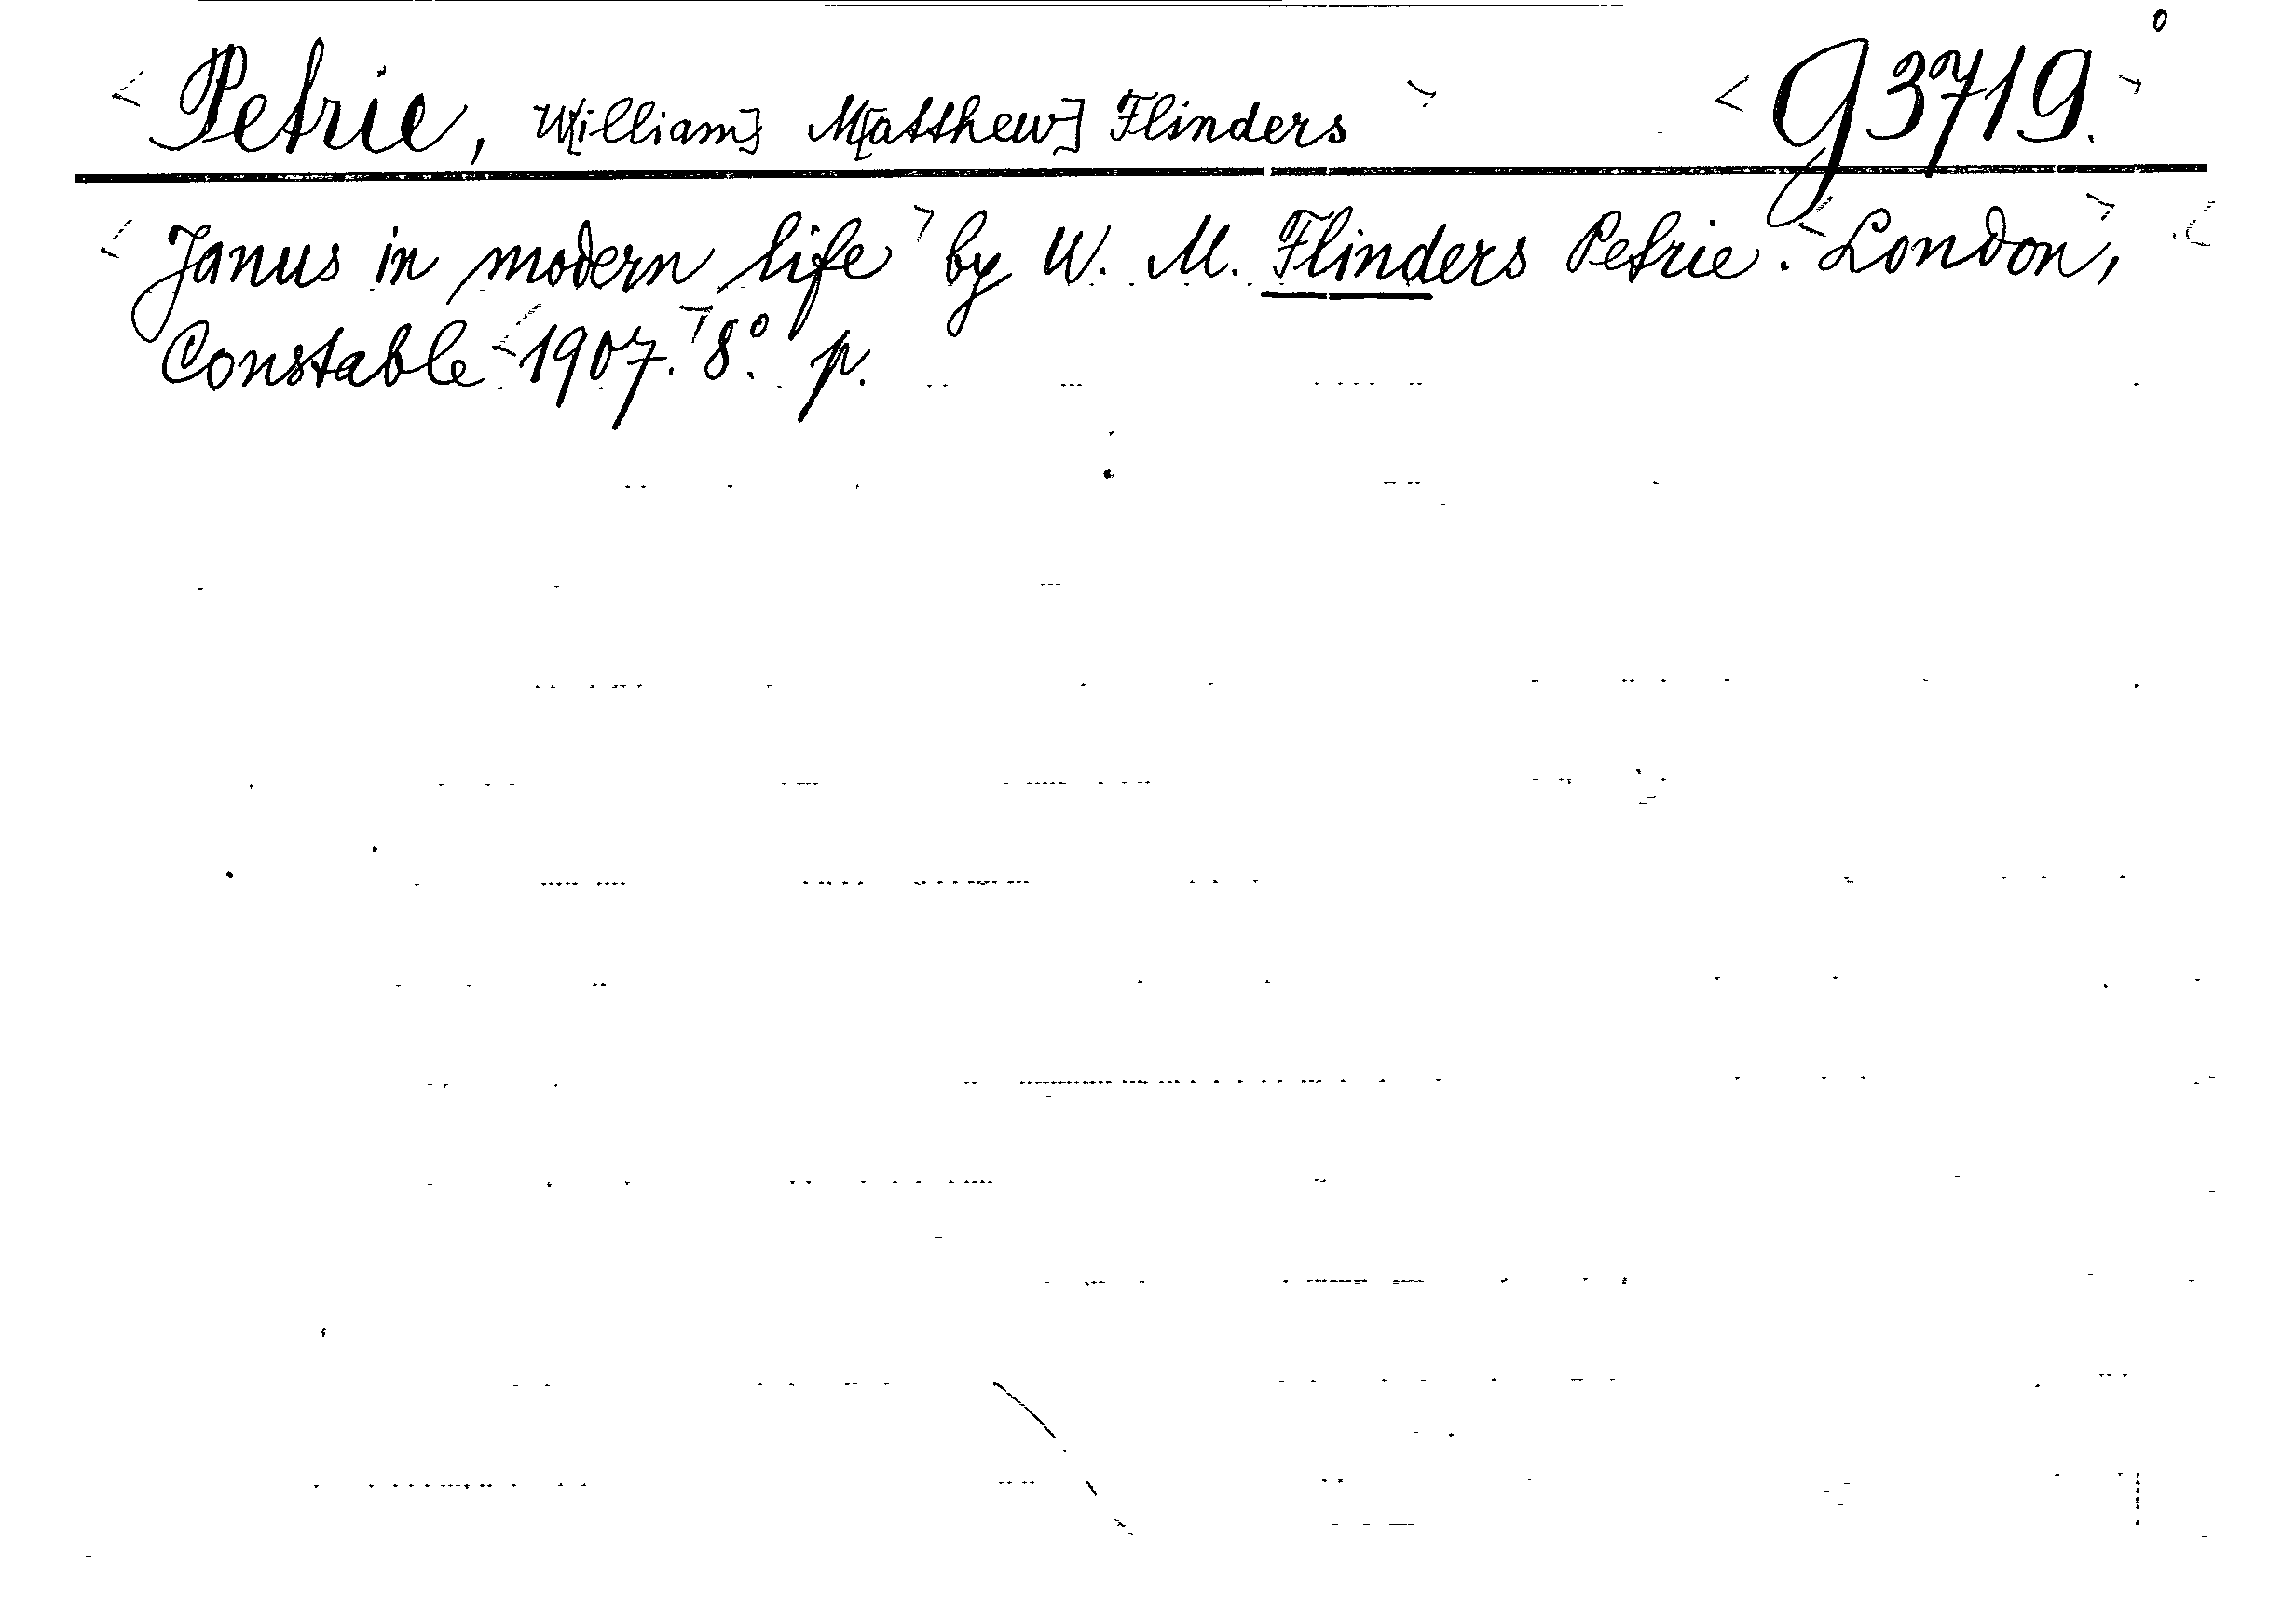 < Petrie, W[illiam] M[atthew] Flinders > < G 3719. >
< Janus in modern life > by W. M. Flinders Petrie. < London, >
Constable < 1907. > 8°. p.